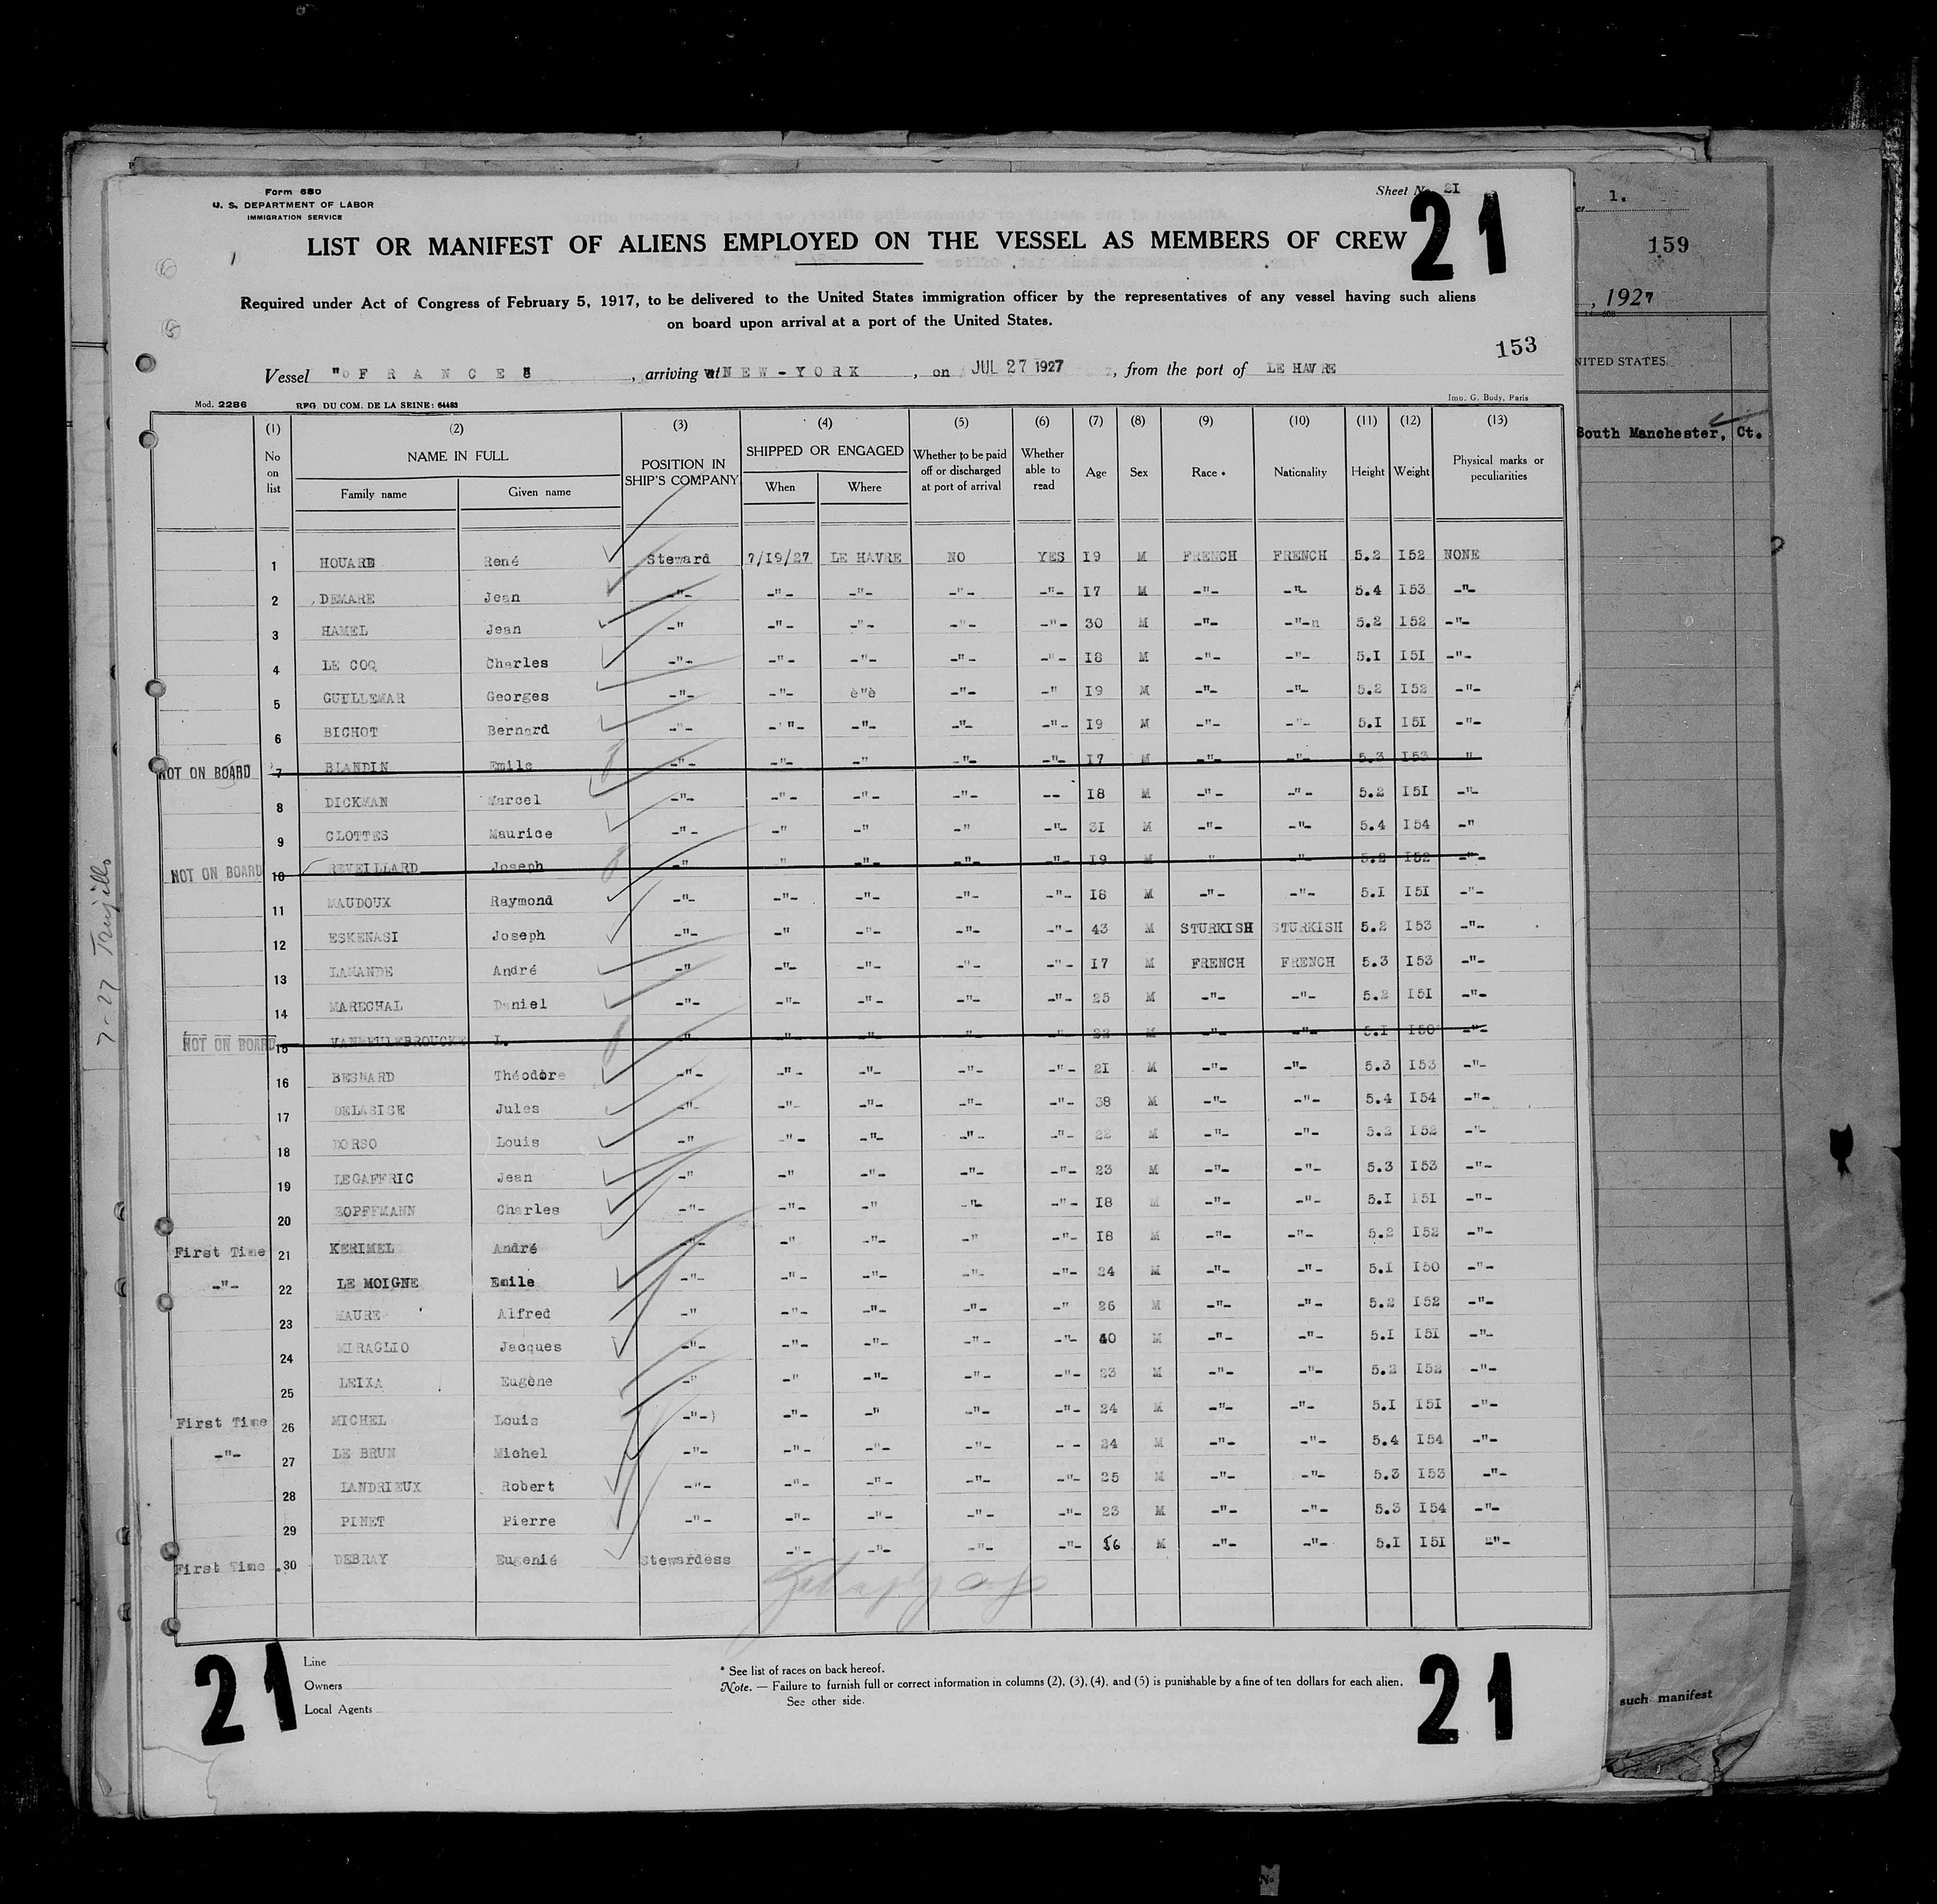 Form 680
U. S. DEPARTMENT OF LABOR
IMMIGRATION SERVICE
Sheet No 21
21
LIST OR MANIFEST OF ALIENS EMPLOYED ON THE VESSEL AS MEMBERS OF CREW
Required under Act of Congress of February 5, 1917, to be delivered to the United States immigration officer by the representatives of any vessel having such aliens
on board upon arrival at a port of the United States.
153
Vessel "FRANCE", arriving at NEW-YORK, on JUL 27 1927, from the port of LE HAVRE
Mod. 2286 REG. DU COM. DE LA SEINE: 64483 Imp. G. Body, Paris
(1) (2) (3) (4) (5) (6) (7) (8) (9) (10) (11) (12) (13)
No on list NAME IN FULL Family name Given name POSITION IN SHIP'S COMPANY SHIPPED OR ENGAGED When Where Whether to be paid off or discharged at port of arrival Whether able to read Age Sex Race * Nationality Height Weight Physical marks or peculiarities
1 HOUARD René Steward 7/19/27 LE HAVRE NO YES 19 M FRENCH FRENCH 5.2 152 NONE
2 DEMARE Jean -"- -"- -"- -"- -"- 17 M -"- -"- 5.4 153 -"-
3 HAMEL Jean -" -"- -"- -"- -"- 30 M -"- -"-n 5.2 152 -"-
4 LE COQ Charles -"- -"- -"- -"- -"- 18 M -"- -"- 5.1 151 -"-
5 GUILLEMAR Georges -"- -"- è"è -"- -" 19 M -"- -"- 5.2 152 -"-
6 BICHOT Bernard -"- -"- -"- -"- -"- 19 M -"- -"- 5.1 151 -"-
NOT ON BOARD 7 BLANDIN Emile -"- -"- -" -"- -"- 17 M -"- -"- 5.3 153 "
8 DICKMAN Marcel -"- -"- -"- -"- -- 18 M -"- -"- 5.2 151 -"-
9 CLOTTES Maurice -"- -" -" -" -"- 31 M -"- -"- 5.4 154 -"
NOT ON BOARD 10 REVEILLARD Joseph -" " -"- -"- -"- 19 M " -"- 5.2 152 -"-
11 MAUDOUX Raymond -"- -"- -"- -"- -"- 18 M -"- -"- 5.1 151 -"-
12 ESKENASI Joseph -"- -" -"- -"- -"- 43 M STURKISH STURKISH 5.2 153 -"-
13 LAMANDE André -" -"- -"- -"- -"- 17 M FRENCH FRENCH 5.3 153 -"-
14 MARECHAL Daniel -"- -"- -"- -"- -"- 25 M -"- -"- 5.2 151 -"-
NOT ON BOARD 15 VANMEULEBROUCKE L. -"- -"- -"- " -"- 22 M -"- -"- 5.1 150 -"-
16 BESNARD Théodore -"- -"- -"- -"- -"- 21 M -"- -"- 5.3 153 -"-
17 DELASISE Jules -"- -"- -"- -"- -"- 38 M -"- -"- 5.4 154 -"-
18 DORSO Louis -" -"- -"- -"- -"- 22 M -"- -"- 5.2 152 -"-
19 LEGAFFRIC Jean -" -" -"- -"- -"- 23 M -"- -"- 5.3 153 -"-
20 Charles -"- -"- -" -"- -"- 18 M -"- -"- 5.1 151 -"-
First Time 21 KERIMEL André -"- -" -"- -" -"- 18 M -"- -"- 5.2 152 -"-
-"- 22 LE MOIGNE Emile -"- -"- -"- -"- -"- 24 M -"- -"- 5.1 150 -"-
23 MAURE Alfred -" -"- -"- -"- -" 26 M -"- -"- 5.2 152 -"-
24 MIRAGLIO Jacques -"- -"- -"- -"- -"- 40 M -"- -"- 5.1 151 -"-
25 LEIXA Eugène -" -" -"- -"- -"- 23 M -"- -"- 5.2 152 -"-
First Time 26 MICHEL Louis -"-) -"- -" -"- -"- 24 M -"- -"- 5.1 151 -"-
-"- 27 LE BRUN Michel -"- -"- -"- -"- -"- 24 M -"- -"- 5.4 154 -"-
28 LANDRIEUX Robert -"- -"- -"- -"- -"- 25 M -"- -"- 5.3 153 -"-
29 PINET Pierre -"- -"- -"- -"- -"- 23 M -"- -"- 5.3 154 -"-
First Time 30 DEBRAY Eugenié Stewardess -"- -"- -"- -"- 56 M -"- -"- 5.1 151 -"-
21
Line
Owners
Local Agents
* See list of races on back hereof.
Note. — Failure to furnish full or correct information in columns (2), (3), (4), and (5) is punishable by a fine of ten dollars for each alien.
See other side.
21
7-27 Trujillo
1.
159
, 1927
NITED STATES
South Manchester, Ct.
such manifest